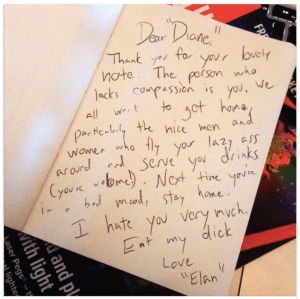 Dear "Diane,"
Thank you for your lovely
note. The person who
lacks compassion is you. We
all want to get home,
particularly the nice men and
women who fly your lazy ass
around and serve you drinks
(you're welcome). Next time you're
in a bad mood, stay home.
I hate you very much.
Eat my dick
Love
"Elan"
FR
d and pl
with light
Laser Pegs